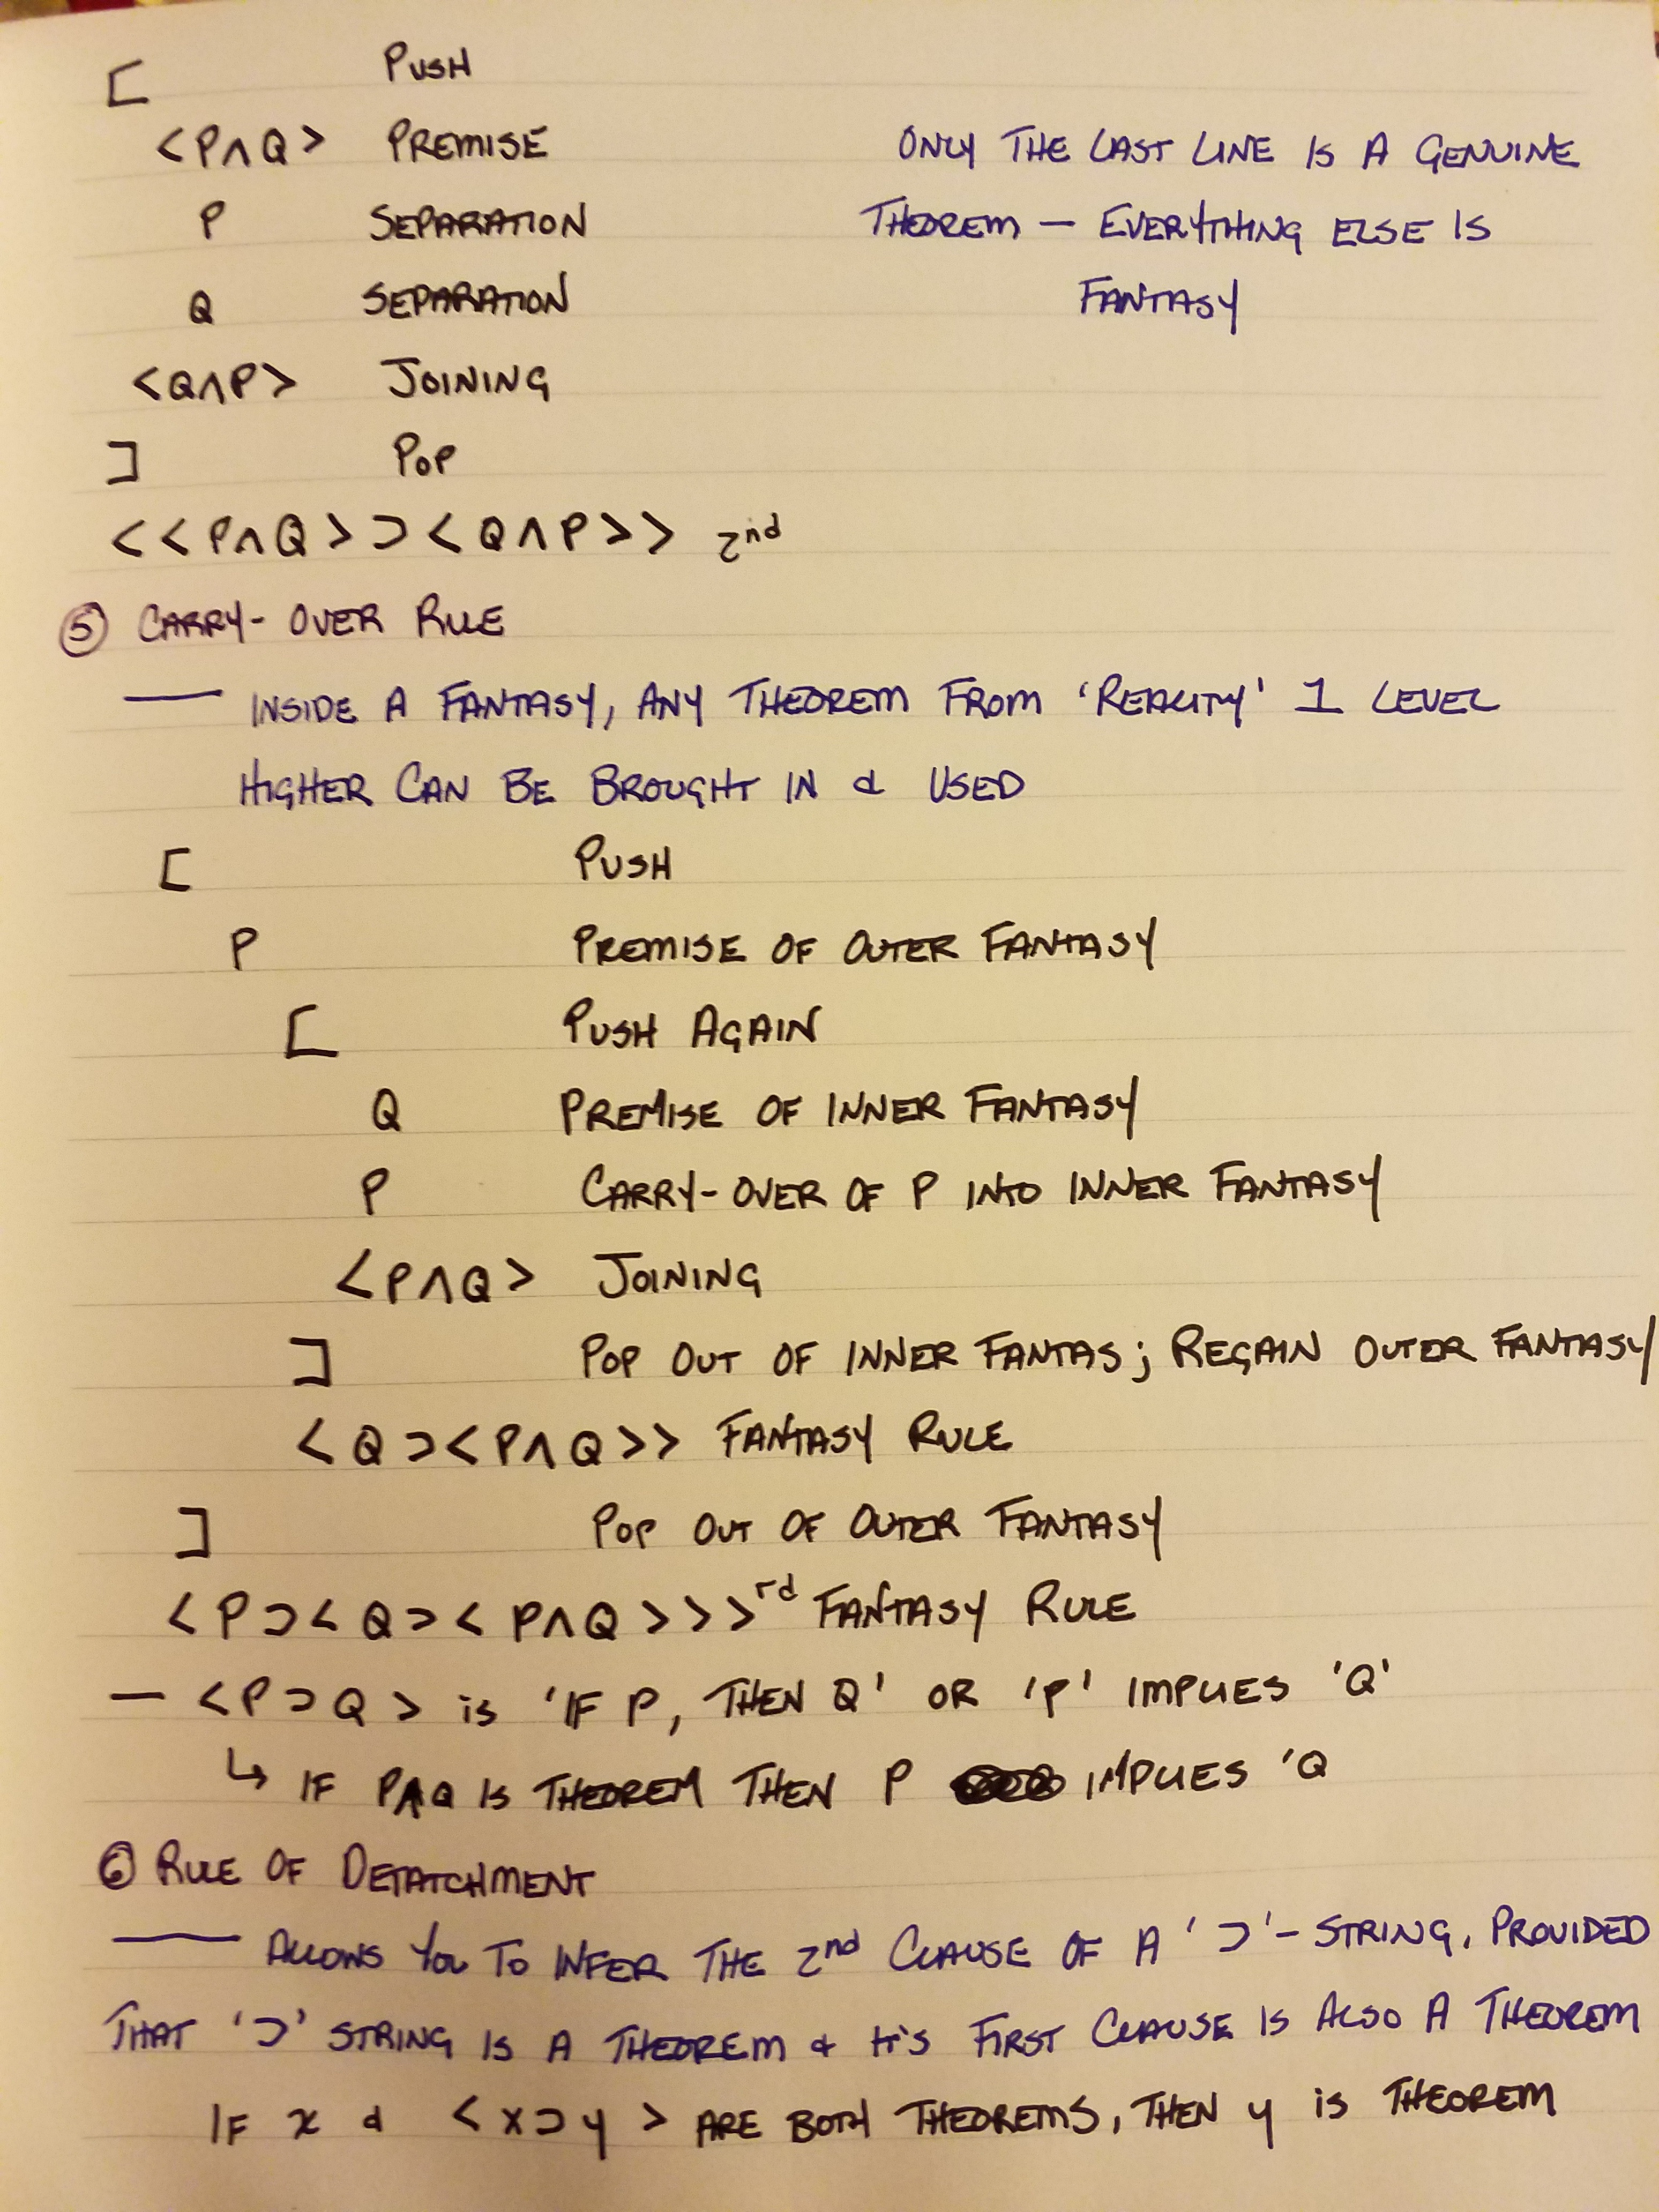 [ PUSH
<P∧Q> PREMISE ONLY THE LAST LINE IS A GENUINE
P SEPARATION THEOREM — EVERYTHING ELSE IS
Q SEPARATION FANTASY
<Q∧P> JOINING
] POP
<<P∧Q>⊃<Q∧P>> 2nd
⑤ CARRY-OVER RULE
— INSIDE A FANTASY, ANY THEOREM FROM 'REALITY' 1 LEVEL
HIGHER CAN BE BROUGHT IN & USED
[ PUSH
P PREMISE OF OUTER FANTASY
[ PUSH AGAIN
Q PREMISE OF INNER FANTASY
P CARRY-OVER OF P INTO INNER FANTASY
<P∧Q> JOINING
] POP OUT OF INNER FANTAS; REGAIN OUTER FANTASY
<Q⊃<P∧Q>> FANTASY RULE
] POP OUT OF OUTER FANTASY
<P⊃<Q⊃<P∧Q>>> rd FANTASY RULE
— <P⊃Q> is 'IF P, THEN Q' OR 'P' IMPLIES 'Q'
↳ IF P∧Q IS THEOREM THEN P IMPLIES 'Q
⑥ RULE OF DETATCHMENT
— ALLOWS YOU TO INFER THE 2nd CLAUSE OF A '⊃'-STRING, PROVIDED
THAT '⊃' STRING IS A THEOREM & IT'S FIRST CLAUSE IS ALSO A THEOREM
IF x & <x⊃y> ARE BOTH THEOREMS, THEN y is THEOREM